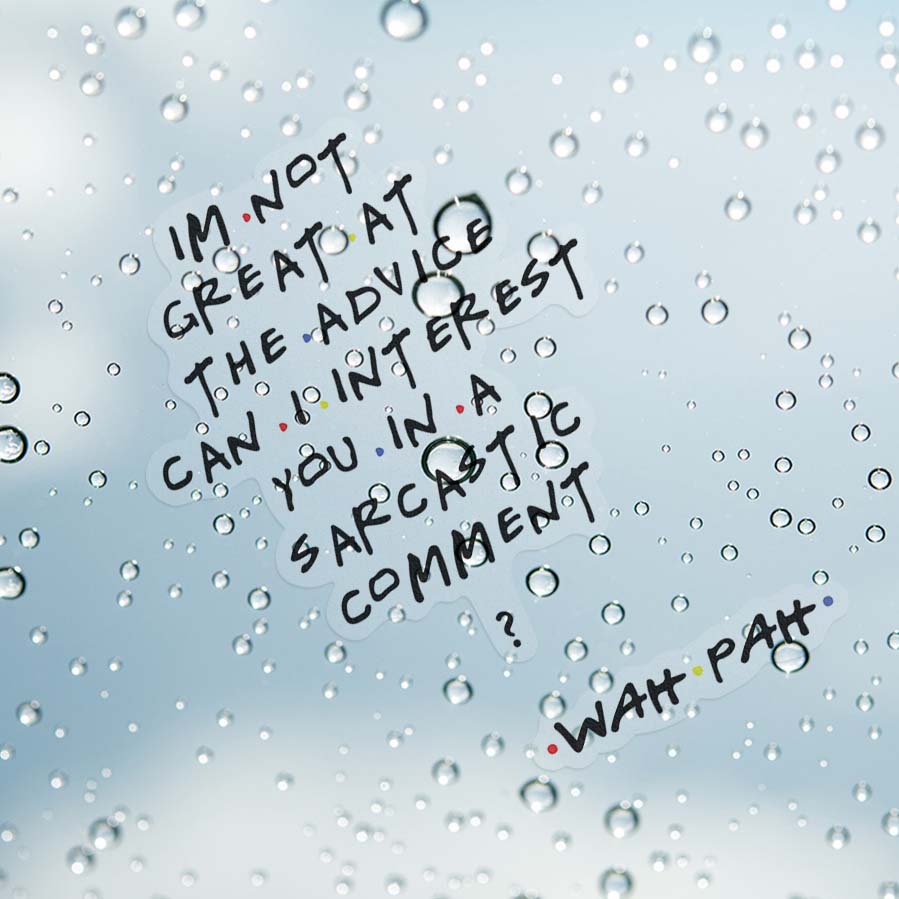 IM·NOT
GREAT·AT
THE·ADVICE
CAN·I·INTEREST
YOU·IN·A
SARCASTIC
COMMENT
?
·WAH·PAH·